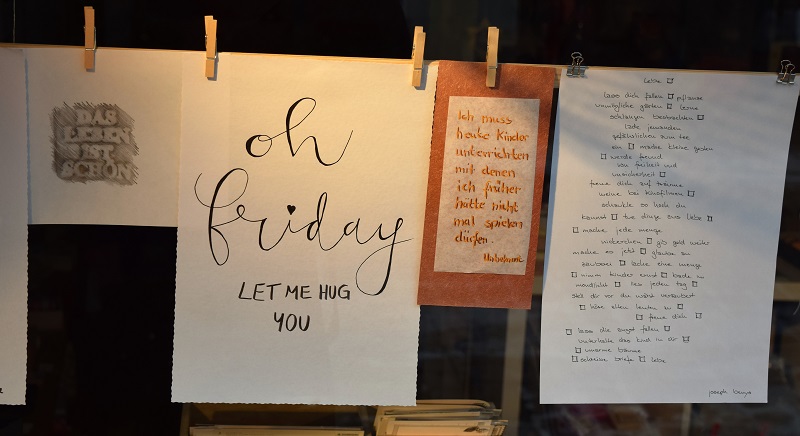 DAS
LEBEN
IST
SCHÖN
oh
friday
LET ME HUG
YOU
Ich muss
heute Kinder
unterrichten
mit denen
ich früher
hätte nicht
mal spielen
dürfen.
Unbekannt
lebe □
lass dich fallen □ pflanze
unmögliche gärten □ lerne
schlangen beobachten □
lade jemanden
gefährlichen zum tee
ein □ mache kleine gesten
□ werde freund
von freiheit und
unsicherheit □
freue dich auf träume
weine bei kinofilmen □
schaukle so hoch du
kannst □ tue dinge aus liebe □
□ mache jede menge
nickerchen □ gib geld weiter
mache es jetzt □ glaube an
zauberei □ lache eine menge
□ nimm kinder ernst □ bade im
mondlicht □ lies jeden tag □
stell dir vor du wärst verzaubert
□ höre alten leuten zu □
□ freue dich □
□ lass die angst fallen □
unterhalte das kind in dir □
□ umarme bäume
□ schreibe briefe □ lebe
joseph beuys